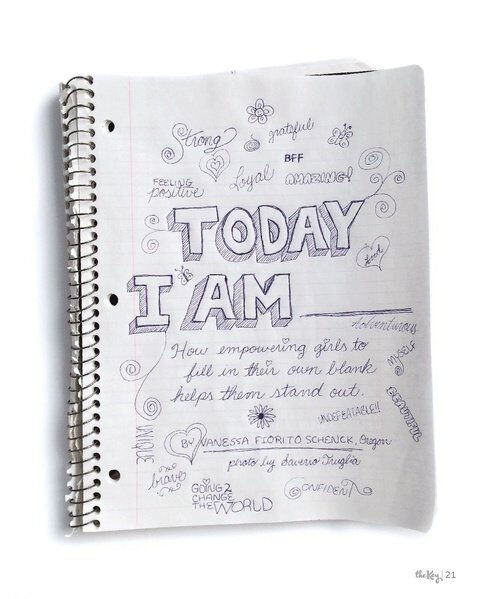 Strong
grateful
BFF
Loyal
AMAZING!
FEELING
positive
TODAY
loved
I AM
Adventurous
MYSELF
How empowering girls to
fill in their own blank
helps them stand out.
BEAUTIFUL
UNDEFEATABLE!!
UNIQUE
BY VANESSA FIORITO SCHENCK, Oregon
photo by Saverio Truglia
brave
GOING 2
CHANGE
THE WORLD
CONFIDENT
theKey | 21